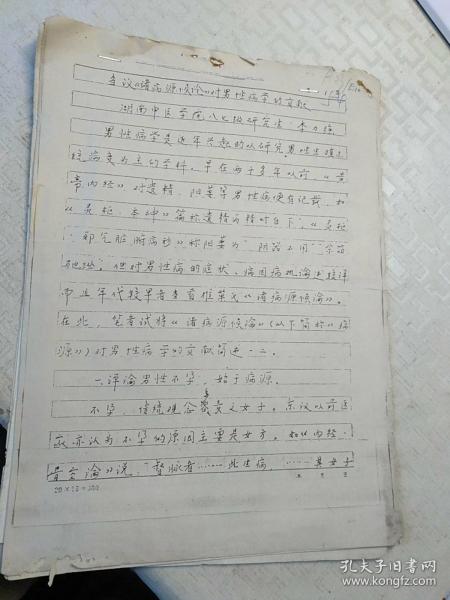 刍议《诸病源候论》对男性病学的贡献
湖南中医学院八七级研究生
男性病学是近年兴起的以研究男性生殖系
统病变为主的学科。早在两千多年以前，《黄
帝内经》对遗精、阳萎等男性病便有记载，如
《灵枢·本神》篇称遗精为精时自下；《灵枢
·邪气脏腑病形》称阳萎为"阴器不用"
但对男性病的症状、病因病机论述较详
而且年代较早者当首推巢氏《诸病源候论》。
在此，笔者试将《诸病源候论》(以下简称《病
源》)对男性病学的贡献简述一二。
一、详论男性不孕，始于病源。
不孕，传统观念责之女子。宋议以前医
家亦认为不孕的原因主要是女方。如《内经·
骨空论》说："督脉者……此生病，……其女子
20×15=300
孔夫子旧书网
www.kongfz.com